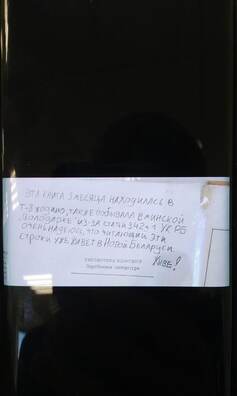 ЭТА КНИГА 3 МЕСЯЦА НАХОДИЛАСЬ В
ТАКЖЕ ПОБЫВАЛА В МИНСКОЙ
"ВОЛОДАРКЕ" ИЗ-ЗА СТАТЬИ 342 ч.1 УК РБ
ОЧЕНЬ НАДЕЮСЬ, ЧТО ЧИТАЮЩИЙ ЭТИ
СТРОКИ УЖЕ ЖИВЕТ В НОВОЙ БЕЛАРУСИ.
ЖИВЕ!